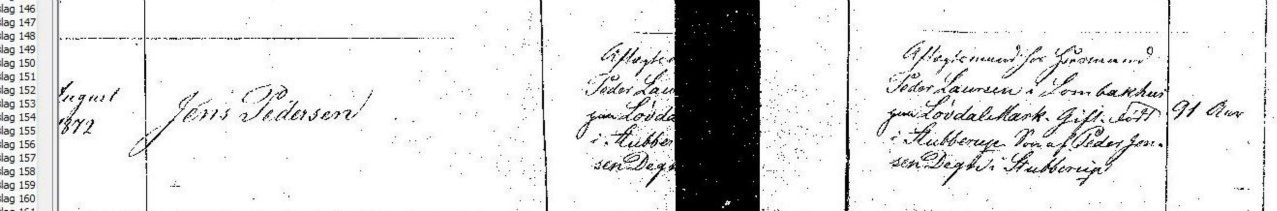 lag 146
lag 147
lag 148
lag 149
lag 150
lag 151
lag 152
lag 153
lag 154
lag 155
lag 156
lag 157
lag 158
lag 159
lag 160
lag 161
August
1872
Jens Pedersen
Aftægts
Peder Lau
paa Lovda
i Stubber
sen Degn
Aftægtsmand hos Huusmand
Peder Laursen i Lombakhus
paa Lovdal Mark. Gift. født
i Stubberup. Søn af Peder Jen-
sen Degn i Stubberup
91 Aar